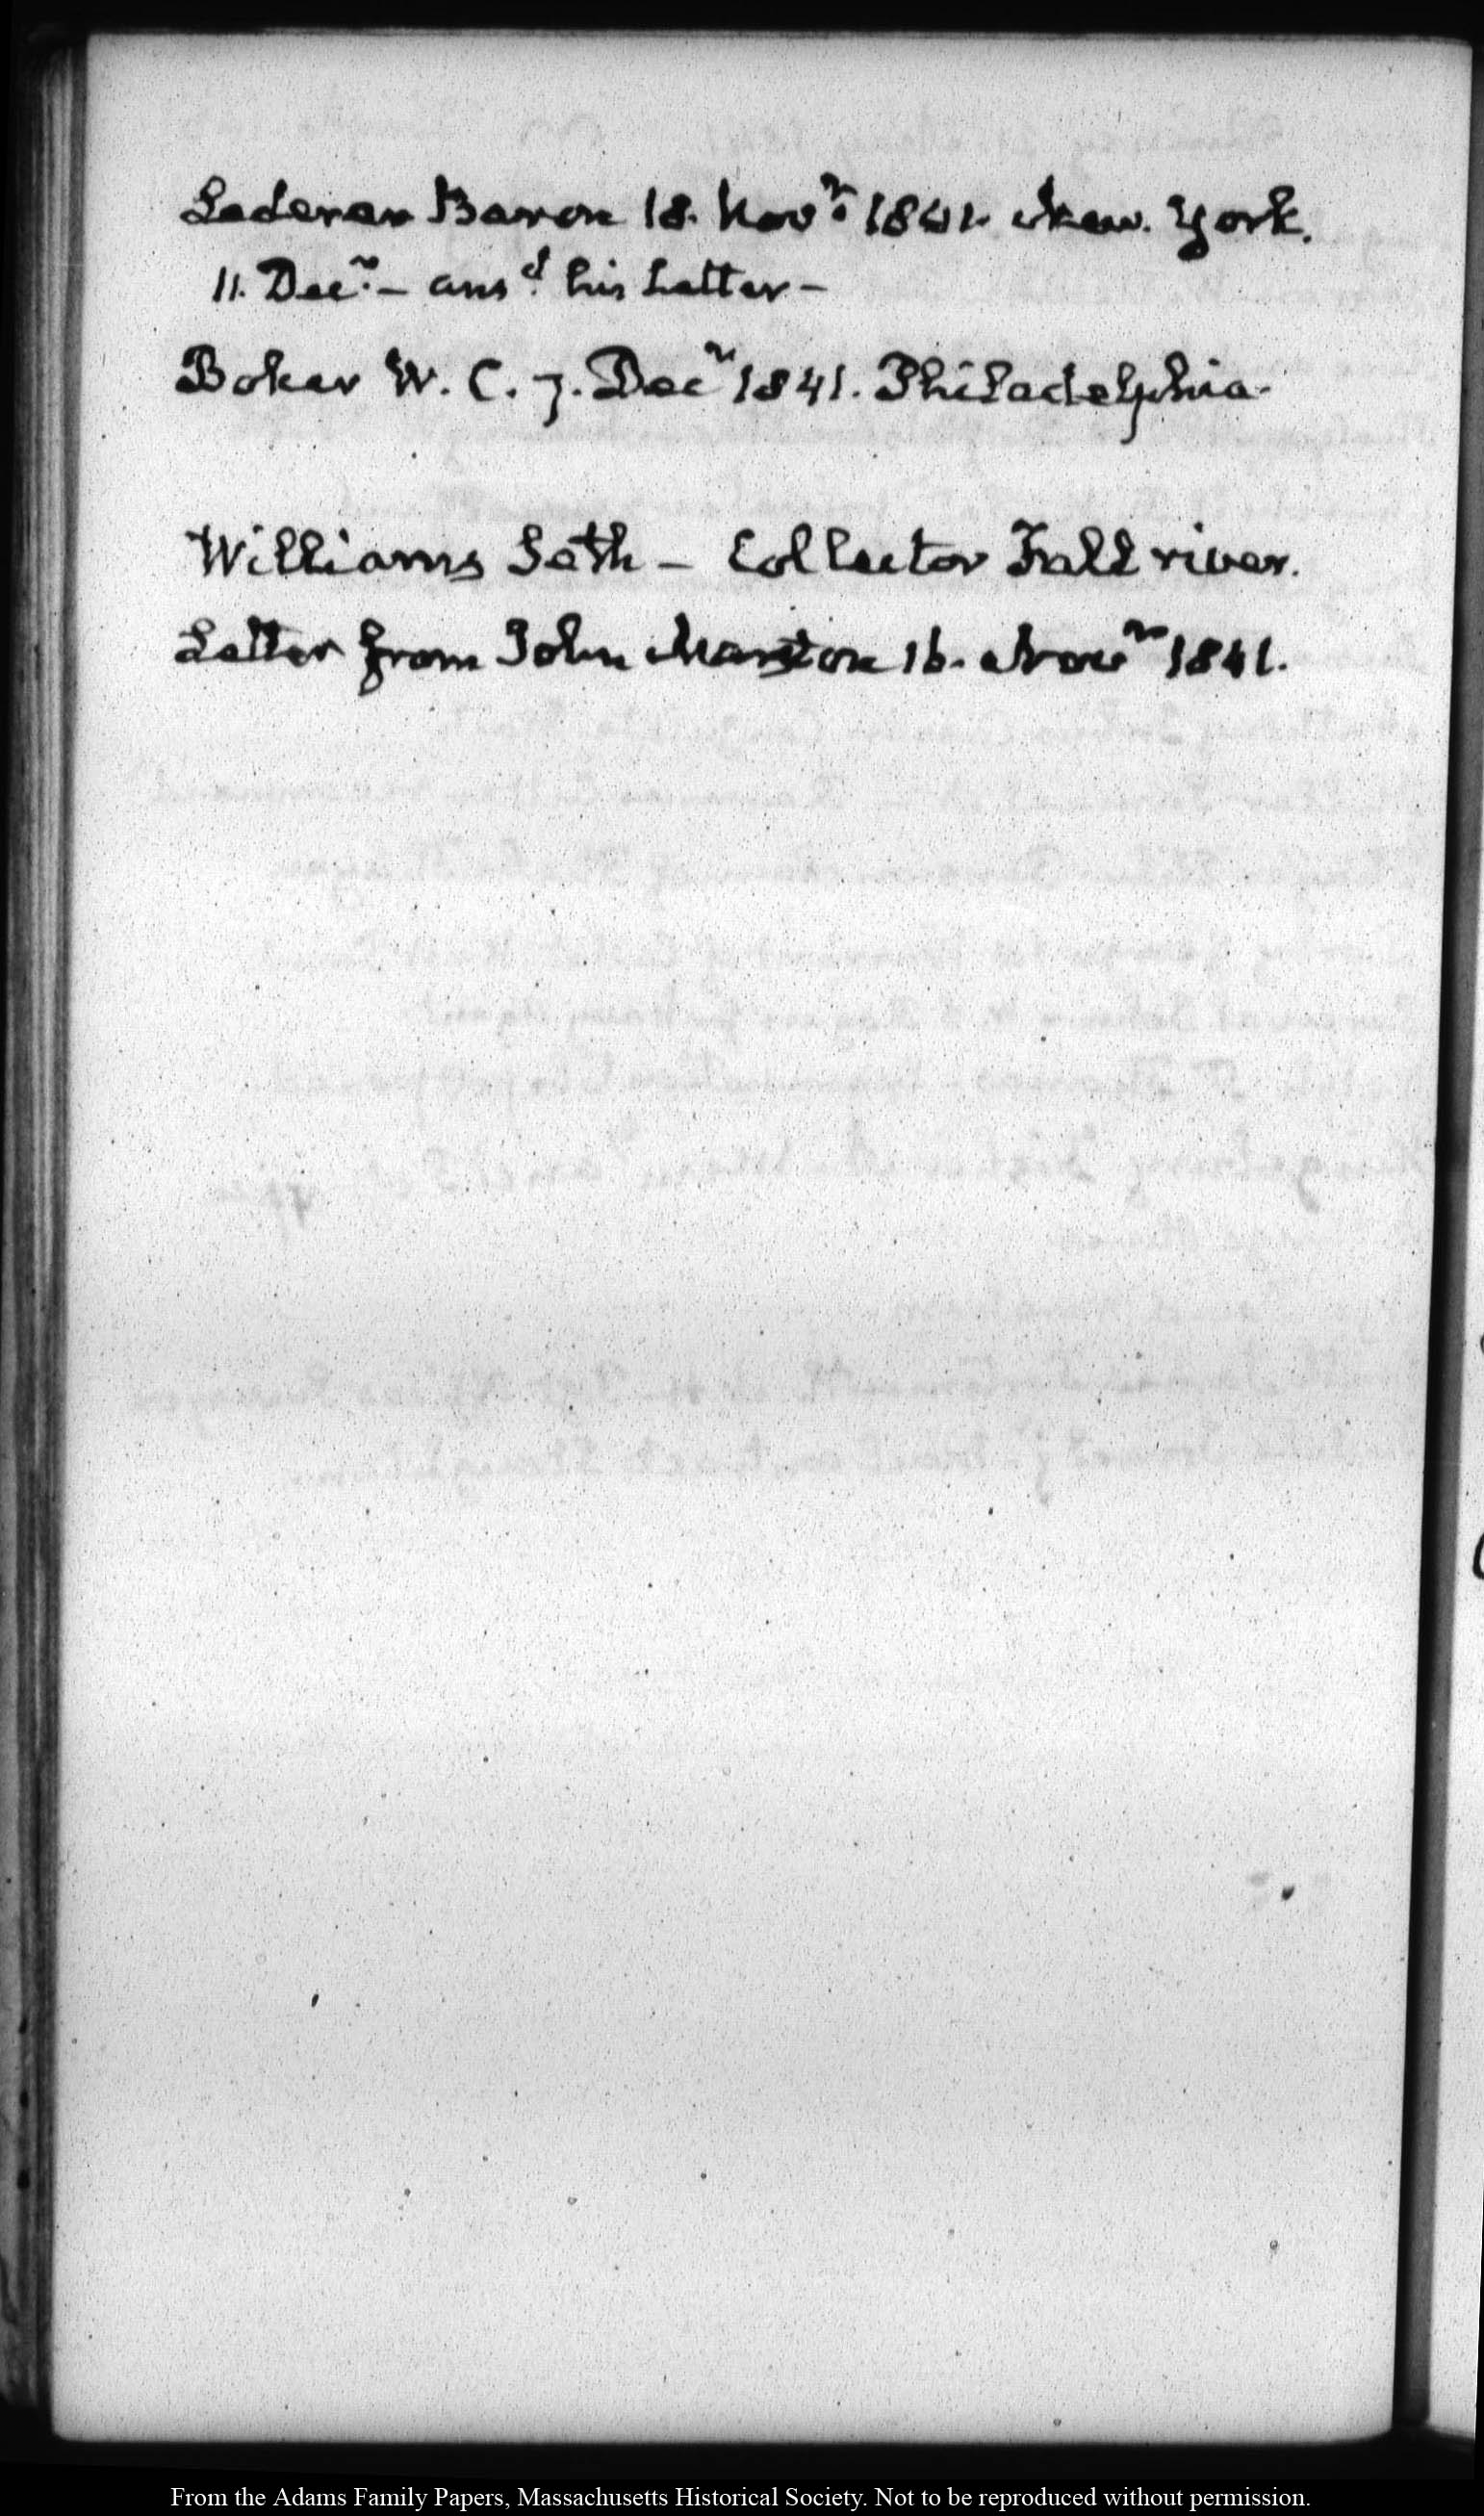 Lederer Baron 18. Novr. 1841. New. York.
11. Decr. – ansd. his Letter –
Boker W. C. 7. Decr 1841. Philadelphia.
Williams Seth – Collector Fall river.
Letter from John Marston 16. Novr 1841.
From the Adams Family Papers, Massachusetts Historical Society. Not to be reproduced without permission.